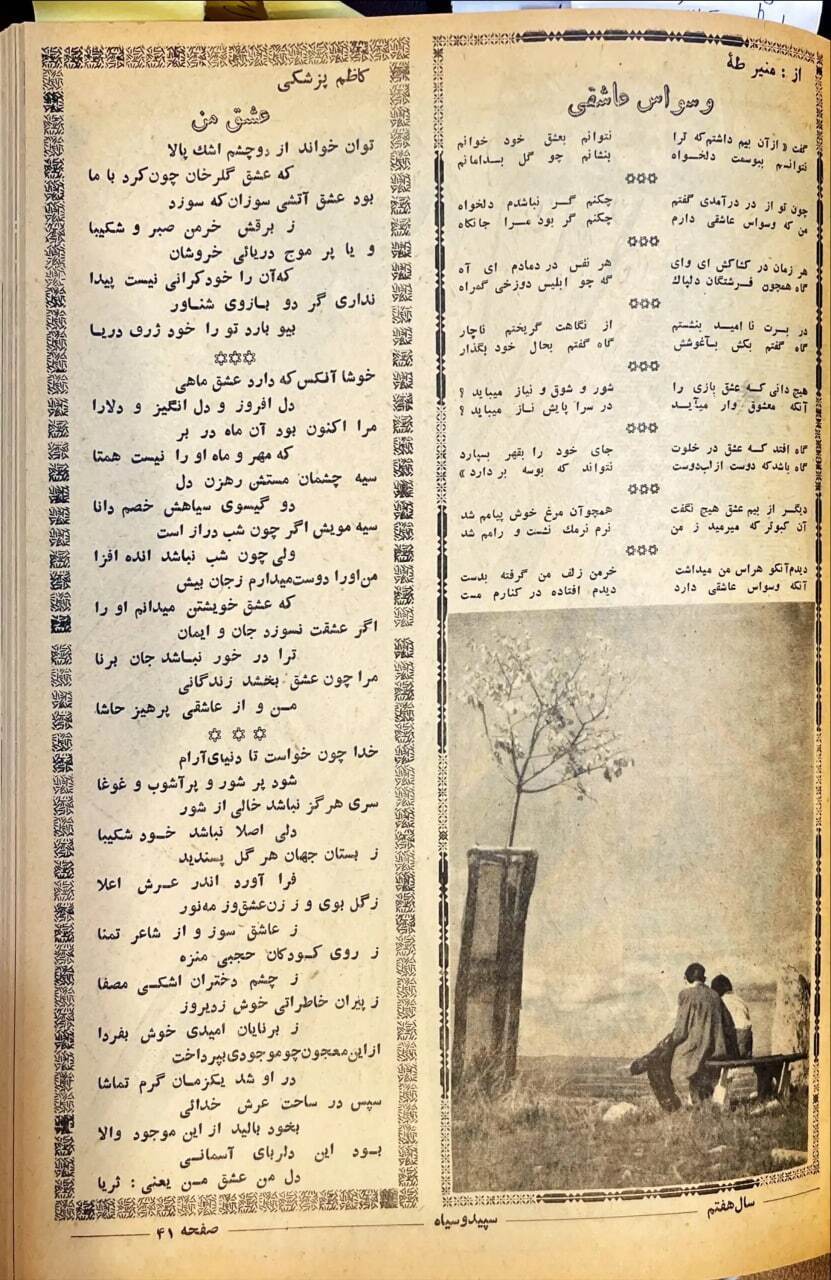 از : منیر طهٔ
وسواس عاشقی
گفت « از آن بیم داشتم که ترا نتوانم بعشق خود خوانم
نتوانم ببوسمت دلخواه بنشانم چو گل بدامانم
✡✡✡
چون تو از در درآمدی گفتم چکنم گر نباشدم دلخواه
من که وسواس عاشقی دارم چکنم گر بود مرا جانکاه
✡✡✡
هر زمان در کشاکش ای وای هر نفس در دمادم ای آه
گاه همچون فرشتگان دلپاک گه چو ابلیس دوزخی گمراه
✡✡✡
در برت نا امید بنشستم از نگاهت گریختم ناچار
گاه گفتم بکش بآغوشش گاه گفتم بحال خود بگذار
✡✡✡
هیچ دانی که عشق بازی را شور و شوق و نیاز میباید ؟
آنکه معشوق وار میآید در سرا پایش ناز میباید ؟
✡✡✡
گاه افتد که عشق در خلوت جای خود را بقهر بسپارد
گاه باشد که دوست از لب دوست نتواند که بوسه بر دارد »
✡✡✡
دیگر از بیم عشق هیچ نگفت همچو آن مرغ خوش پیامم شد
آن کبوتر که میرمید ز من نرم نرمك نشست و رامم شد
✡✡✡
دیدم آنکو هراس من میداشت خرمن زلف من گرفته بدست
آنکه وسواس عاشقی دارد دیدم افتاده در کنارم مست
کاظم پزشکی
عشق من
توان خواند از دوچشم اشك پالا
که عشق گلرخان چون کرد با ما
بود عشق آتشی سوزان که سوزد
ز برقش خرمن صبر و شکیبا
و یا پر موج دریائی خروشان
که آن را خود کرانی نیست پیدا
نداری گر دو بازوی شناور
بیو بارد تو را خود ژرف دریا
✡✡✡
خوشا آنکس که دارد عشق ماهی
دل افروز و دل انگیز و دلارا
مرا اکنون بود آن ماه در بر
که مهر و ماه او را نیست همتا
سیه چشمان مستش رهزن دل
دو گیسوی سیاهش خصم دانا
سیه مویش اگر چون شب دراز است
ولی چون شب نباشد انده افزا
من اورا دوست میدارم زجان بیش
که عشق خویشتن میدانم او را
اگر عشقت نسوزد جان و ایمان
ترا در خور نباشد جان برنا
مرا چون عشق بخشد زندگانی
من و از عاشقی پرهیز حاشا
✡ ✡ ✡
خدا چون خواست تا دنیای آرام
شود پر شور و پرآشوب و غوغا
سری هرگز نباشد خالی از شور
دلی اصلا نباشد خود شکیبا
ز بستان جهان هر گل پسندید
فرا آورد اندر عرش اعلا
زگل بوی و ز زن عشق وز مه نور
ز عاشق سوز و از شاعر تمنا
ز روی کودکان حجبی منزه
ز چشم دختران اشکی مصفا
ز پیران خاطراتی خوش زدیروز
ز برنایان امیدی خوش بفردا
از این معجون چو موجودی بپرداخت
در او شد یکزمان گرم تماشا
سپس در ساحت عرش خدائی
بخود بالید از این موجود والا
بود این دلربای آسمانی
دل من عشق من یعنی : ثریا
سال هفتم
سپید و سیاه
صفحه ۴۱